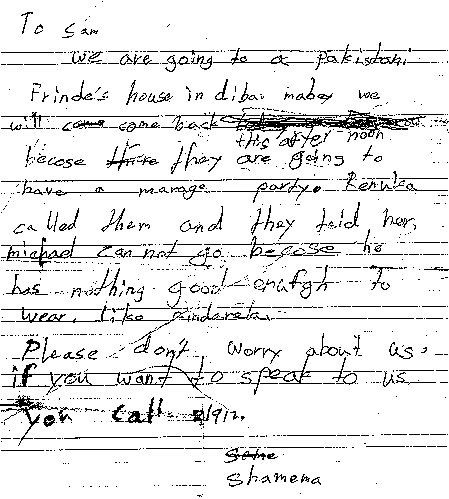 To Sam
We are going to a pakistani
Frinde's house in dibai mabey we
will come come back
this after noon
becose there they are going to
have a marage party. Renuka
called them and they told her,
michad can not go becose he
has nothing good enufgh to
wear. like sinderela.
Please don't worry about us.
if you want to speak to us
you call
Shamema